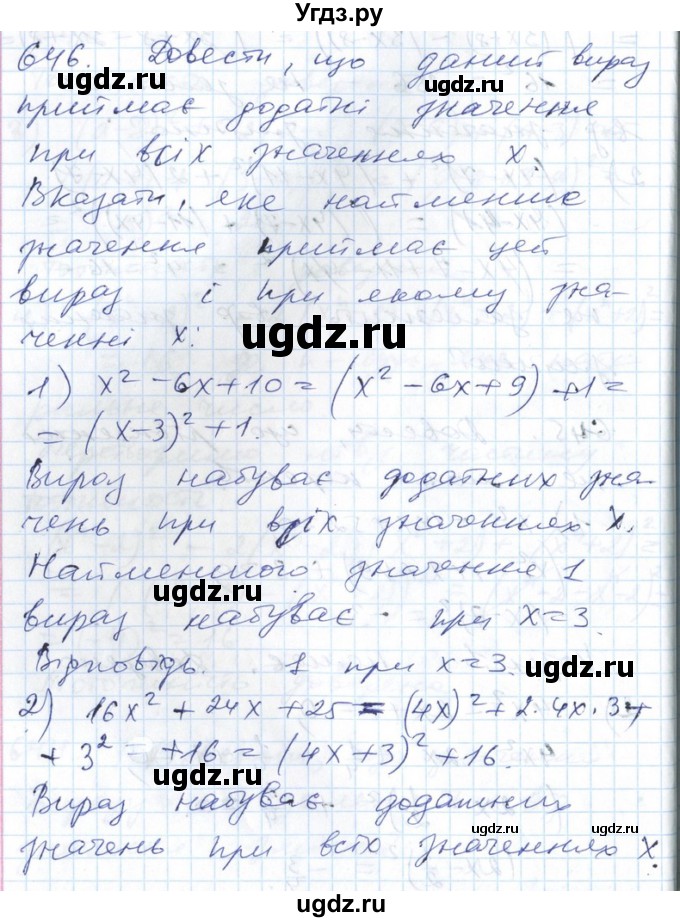 Угдз.ру
646. Довести, що даний вираз
приймає додатні значення
при всіх значеннях x.
Вказати, яке найменше
значення приймає цей
вираз і при якому зна-
ugdz.ru
ченні x:
ugdz.ru
1) x² - 6x + 10 = (x² - 6x + 9) + 1 =
= (x - 3)² + 1.
Вираз набуває додатних зна-
чень при всіх значеннях x.
Найменшого значення 1
ugdz.ru
вираз набуває при x = 3.
Відповідь. 1 при x = 3.
ugdz.ru
2) 16x² + 24x + 25 = (4x)² + 2·4x·3 +
+ 3² = +16 = (4x + 3)² + 16.
ugdz.ru
Вираз набуває додатних
ugdz.ru ugdz.ru
значень при всіх значеннях x.
ugdz.ru